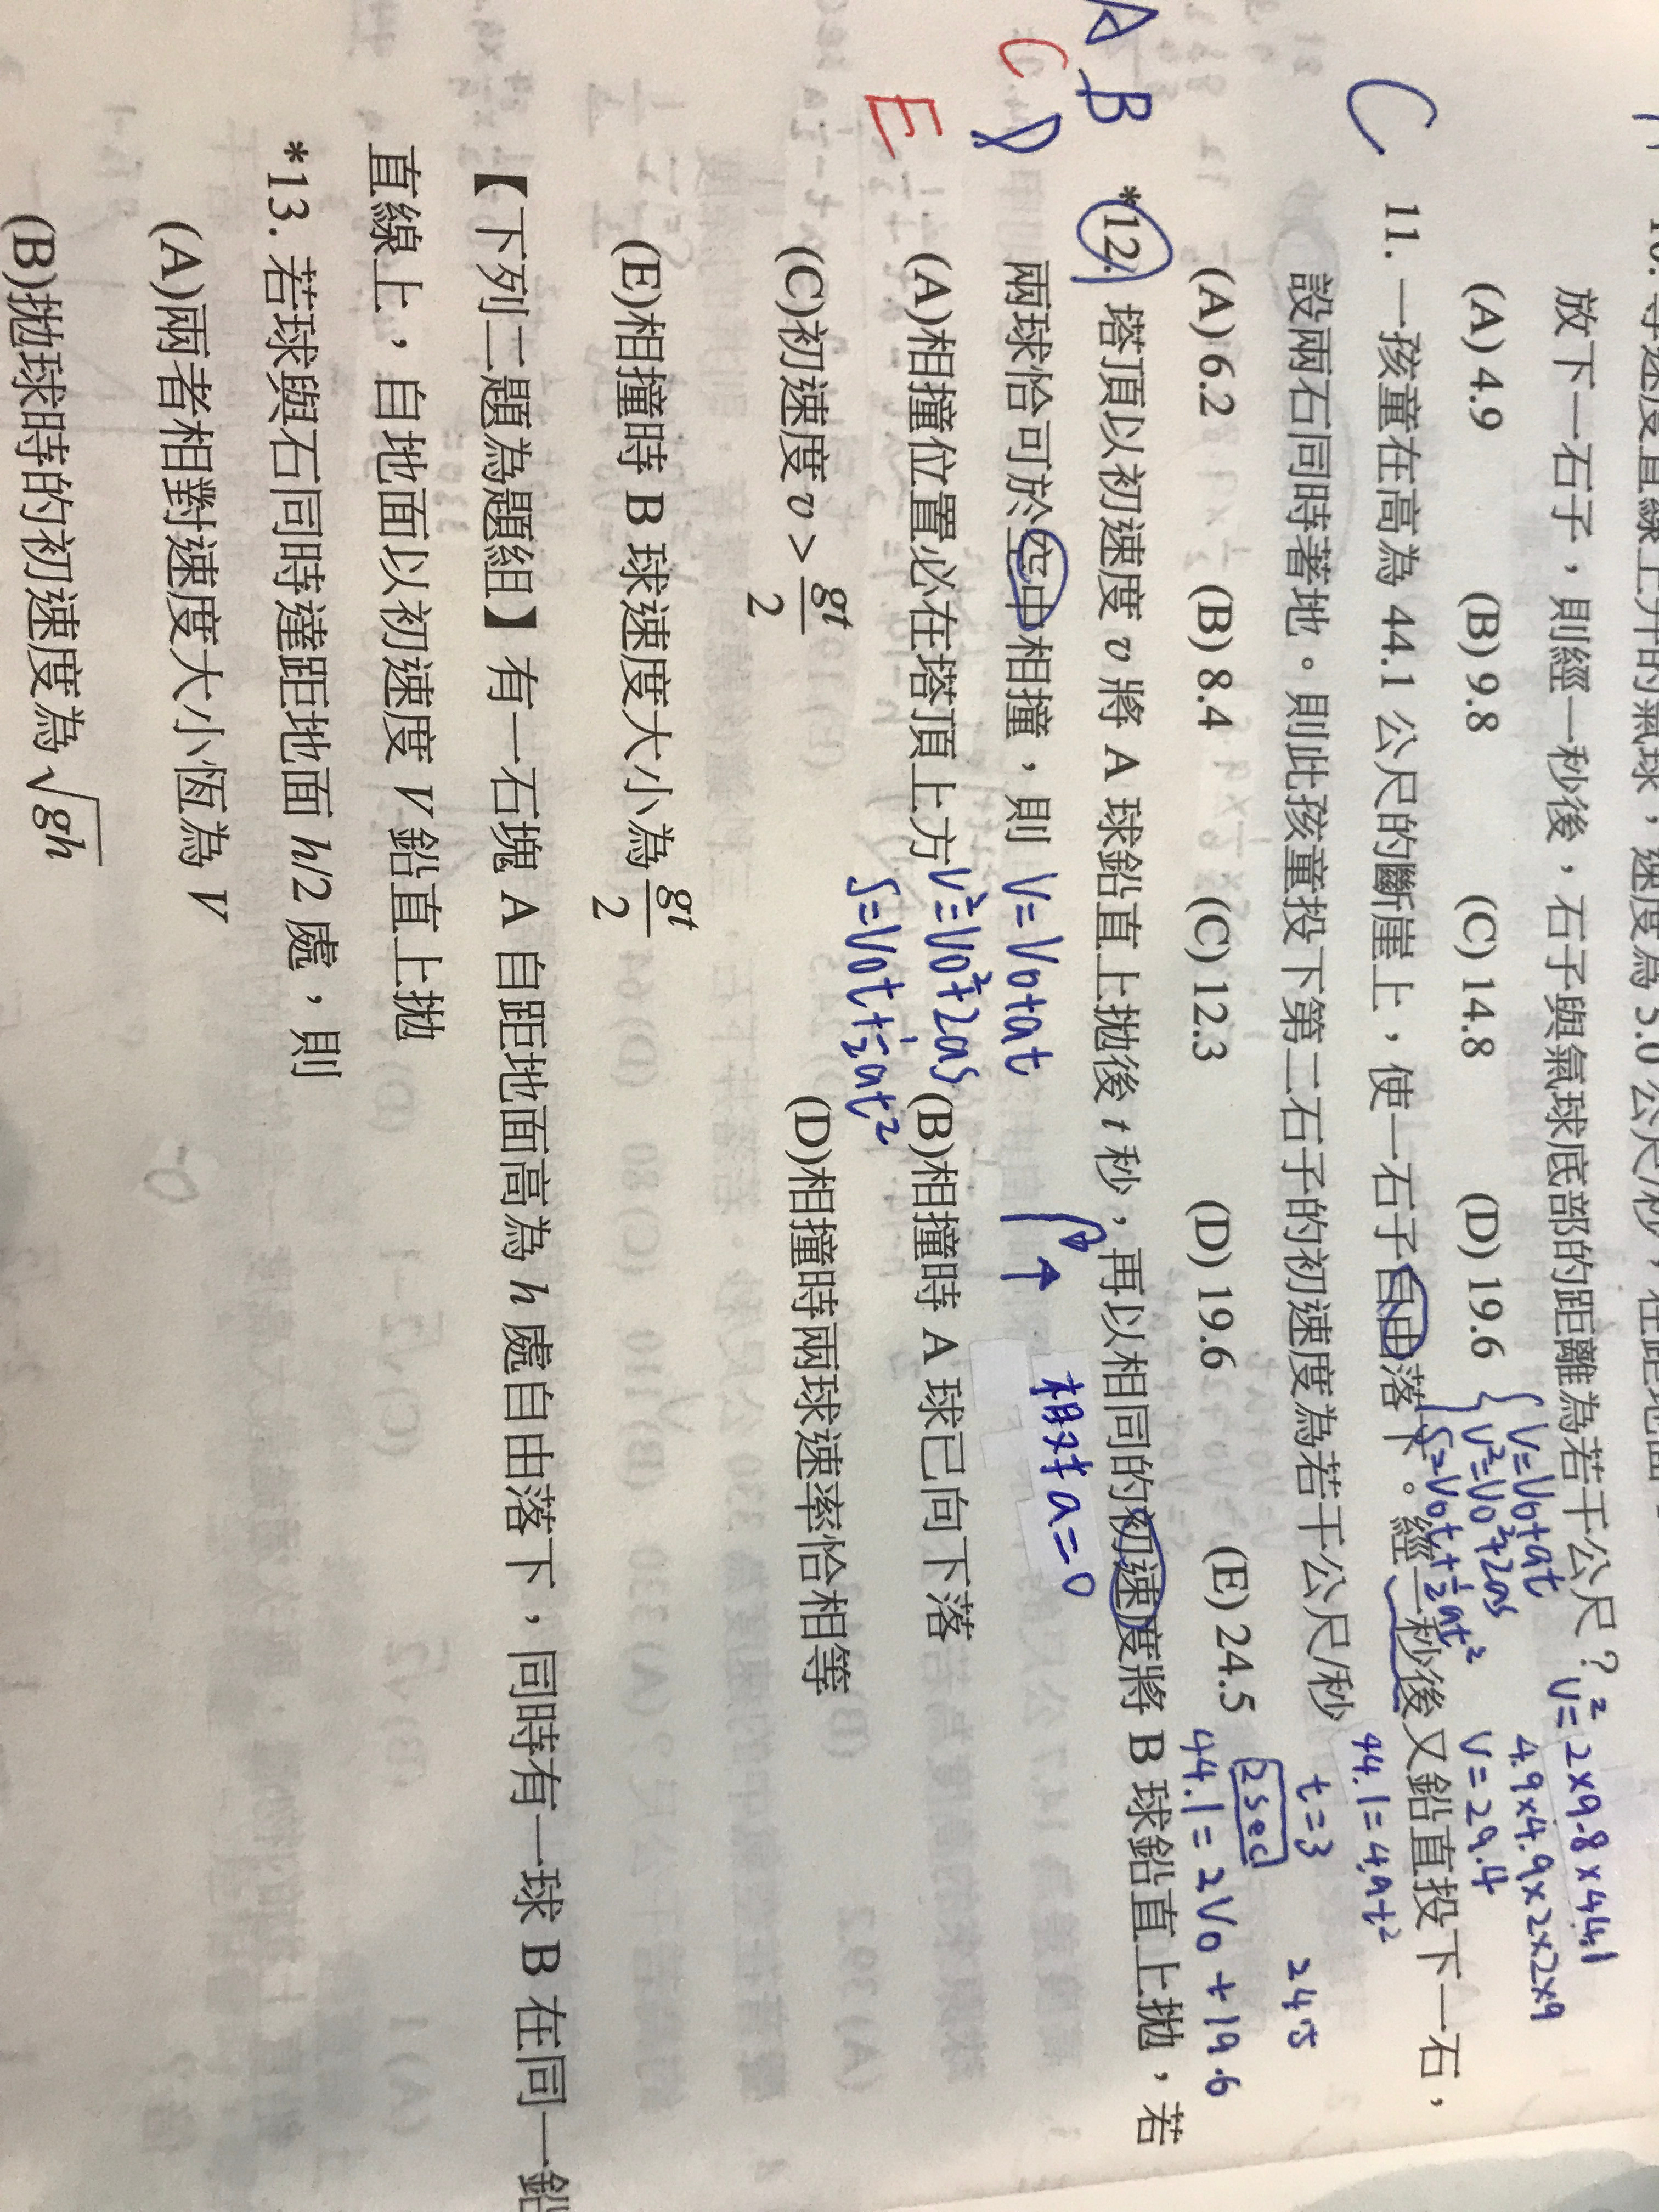 10. 等速度直線上升的氣球，速度為 5.0 公尺/秒，在距地面
放下一石子，則經一秒後，石子與氣球底部的距離為若干公尺？
(A) 4.9 (B) 9.8 (C) 14.8 (D) 19.6
V=V0+at
V²=V0²+2as
S=V0t+½at²
V²=2×9.8×44.1
4.9×4.9×2×2×9
V=29.4
C
11. 一孩童在高為 44.1 公尺的斷崖上，使一石子自由落下。經一秒後又鉛直投下一石，
設兩石同時著地。則此孩童投下第二石子的初速度為若干公尺/秒
44.1=4.9t²
t=3
2sec
24.5
(A) 6.2 (B) 8.4 (C) 12.3 (D) 19.6 (E) 24.5
44.1=2V0+19.6
A B
C D
E
*12. 塔頂以初速度 v 將 A 球鉛直上拋後 t 秒，再以相同的初速度將 B 球鉛直上拋，若
兩球恰可於空中相撞，則
V=V0+at
V²=V0²+2as
S=V0t+½at²
相对a=0
(A)相撞位置必在塔頂上方 (B)相撞時 A 球已向下落
(C)初速度 v > gt/2 (D)相撞時兩球速率恰相等
(E)相撞時 B 球速度大小為 gt/2
【下列二題為題組】有一石塊 A 自距地面高為 h 處自由落下，同時有一球 B 在同一鉛
直線上，自地面以初速度 V 鉛直上拋
*13. 若球與石同時達距地面 h/2 處，則
(A)兩者相對速度大小恆為 V
(B)拋球時的初速度為 √gh